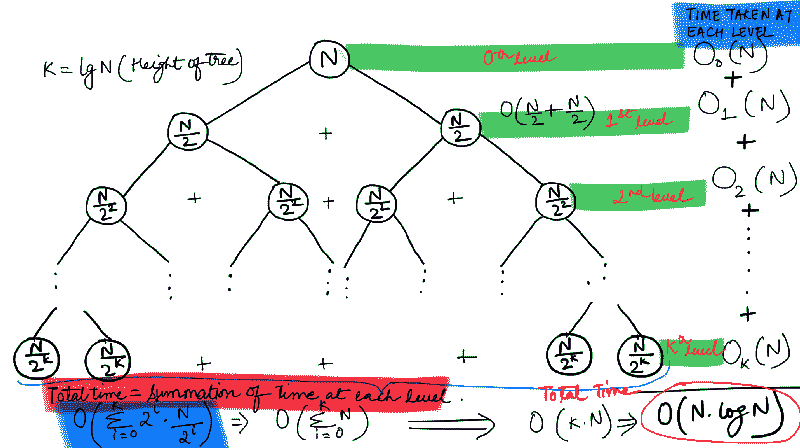 TIME TAKEN AT
EACH LEVEL
K = lg N (Height of Tree)
N
0th level
O₀(N)
+
N/2
+
N/2
O(N/2 + N/2)
1st level
O₁(N)
+
N/2²
+
N/2²
+
N/2²
+
N/2²
2nd level
O₂(N)
+
+
N/2^K
N/2^K
+
+
+
N/2^K
N/2^K
Kth level
Oₖ(N)
Total time = Summation of Time at each level.
Total Time
O(∑_{i=0} 2^i · N/2^i) ⇒ O(∑_{i=0} N) ⟹ O(K.N) ⇒ O(N·log N)